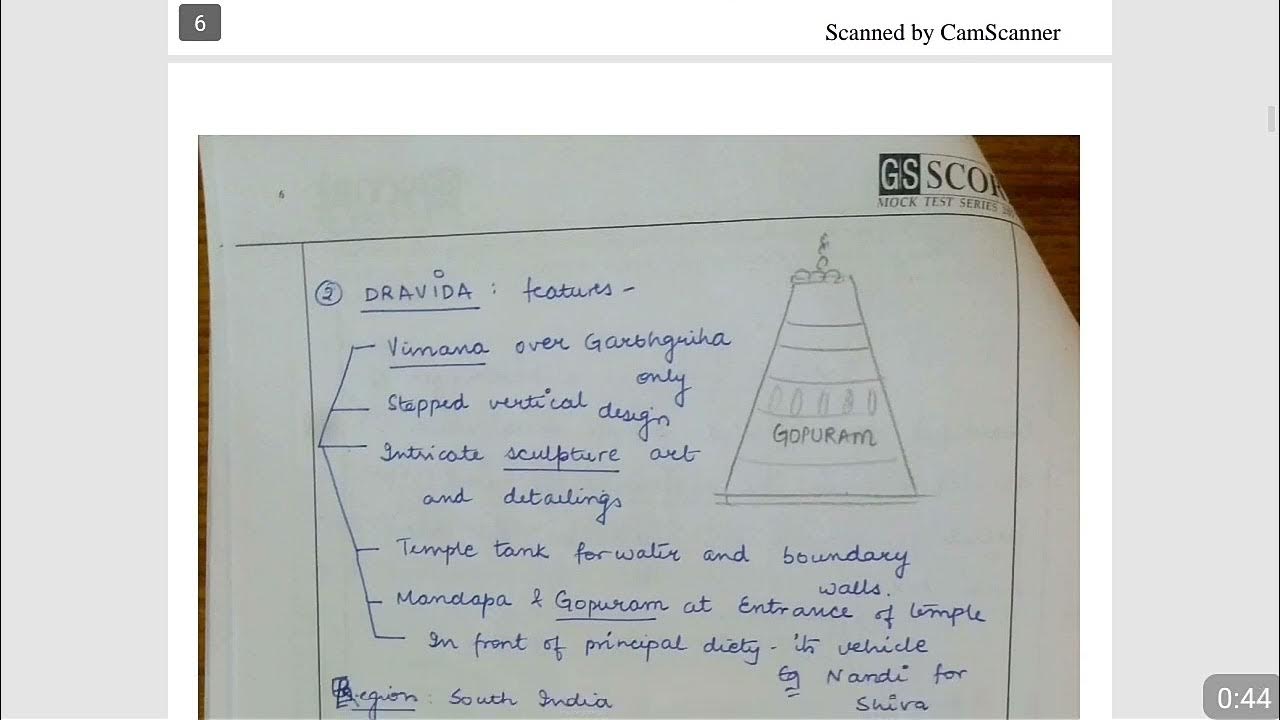 6
Scanned by CamScanner
6
GS SCOR
MOCK TEST SERIES
② DRAVIDA : features -
Vimana over Garbhgriha
only
Stepped vertical design
Intricate sculpture art
and detailings
GOPURAM
Temple tank for water and boundary
walls.
Mandapa & Gopuram at Entrance of temple
In front of principal diety - its vehicle
Eg Nandi for
Shiva
Region : South India
0:44